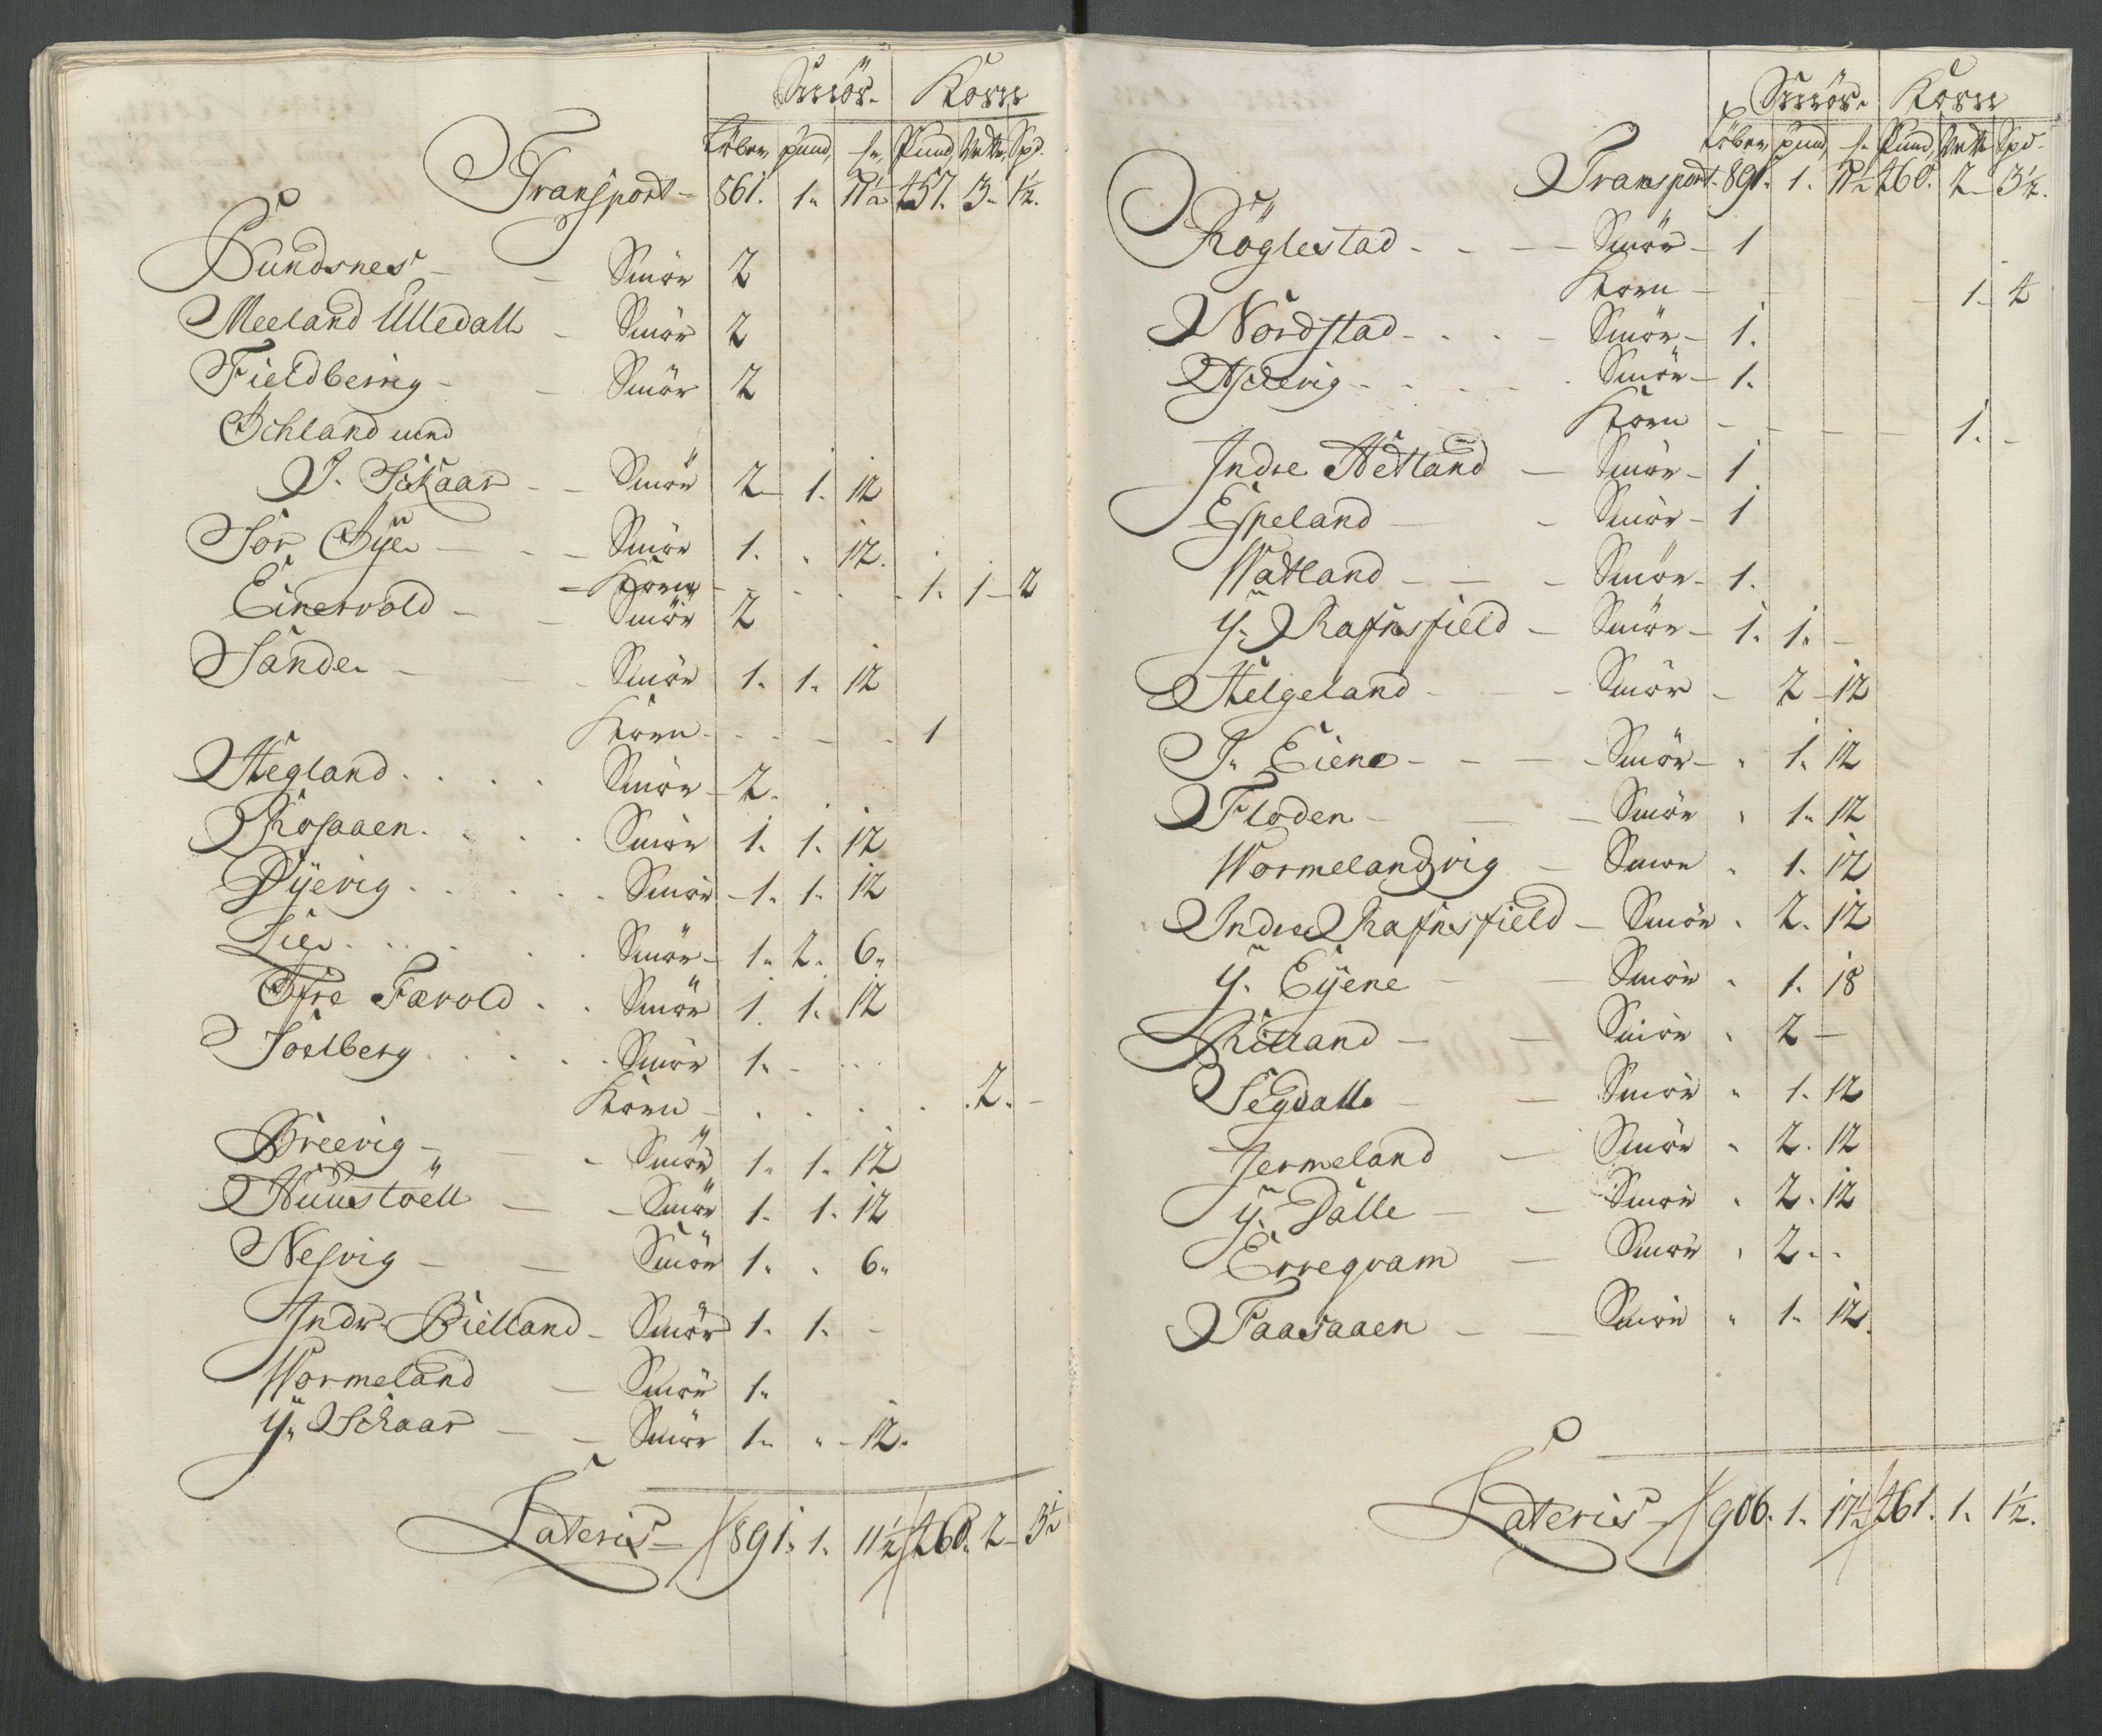 Smör. Korn
Löber pund, Pund, Wett, Spd.
Transport- 861. 1. 11½ 457. 3. 1½.
Sundsnes - - Smör 2
Meeland Ulledall - Smör 2
Fieldberrig - - Smör 2
Ichland und
J. Schaar - - Smör 2 - 1. 12
Sör Bye - - - Smör 1. . 12.
- Korn - . . . . 1. 1 - 2
Einervold - - Smör 2
Sande. - - - Smör 1. 1. 12
Korn - - - - - 1
Hegland . . . . Smör - 2.
Rosaaen . . . . Smör 1. 1. 12
Dyevig . . . . . Smör - 1. 1. 12
Lie . . . . . . Smör - 1. 2. 6.
Öfre Farvold . . Smör 1. 1. 12
Soelberg . . . . . Smör 1. - . .
Korn - . . . . . 2. -
Breevig - - - Smör 1. 1. 12
Huustöell - - Smör 1. 1. 12
Nesvig - - Smör 1. . 6.
Indr. Bielland - Smör 1. 1. -
Wormeland - Smör 1.
Y. Schaar - - Smör 1. . - 12.
Lateris - 891. 1. 11½ 460. 2 - 3½
Smör. Korn
Löber, pund, Pund, Wett, Spd.
Transport. 891. 1. 11½ 460. 2 - 3½.
Röglestad - - - - Smör - 1
Korn - - 1. 4
Nordstad - . . - Smör - 1.
Adsevig - . . . . Smör - 1.
Korn - - - - 1. -
Indre Hetland - Smör - 1
Espeland - - Smör - 1
Watland - - - Smör - 1.
Y. Rafnsfield - Smör - 1. 1. -
Helgeland - - - Smör - 2 - 12
J. Eiene - - - Smör - . 1. 12
Floden - - - Smör . 1. 12
Wormelandsvig - Smör . 1. 12
Indre Rafnsfield - Smör . 2. 12
Y. Eyene - - Smör . 1. 18
Ritland - - Smör . 2 -
Segdall. - - Smör . 1. 12
Jermeland - Smör . 2. 12
Y. Dalle - - Smör . 2. 12
Erreqvam - Smör . 2. .
Faasaaen - - Smör . 1. 12.
Lateris - 906. 1. 17½ 461. 1. 1½.